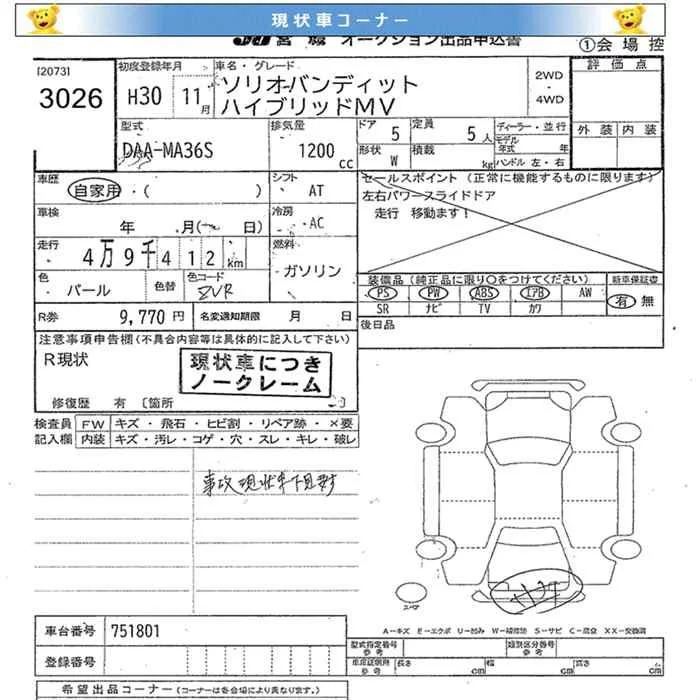 現状車コーナー
JU 宮城 オークション出品申込書
①会場控
[2073]
3026
初度登録年月
H30 11月
車名・グレード
ソリオバンディット
ハイブリッドMV
2WD
・
4WD
評価点
外装 内装
型式
DAA-MA36S
排気量
1200 cc
ドア 5
定員 5人
ディーラー・並行
モデル年式 年
形状 W
積載 kg
ハンドル 左・右
車歴
自家用・( )
シフト AT
セールスポイント (正常に機能するものに限ります)
左右パワースライドドア
走行 移動ます!
車検
年 月(〜 日)
冷房 AC
走行
4万9千412 km
燃料
ガソリン
色
パール
色替
色コード
ZVR
装備品 (純正品に限り○をつけてください)
新車保証書
PS PW ABS エアB AW
有 無
SR ナビ TV カワ
R券 9,770 円
名変通知期限 月 日
後日品
注意事項申告欄(不具合内容等は具体的に記入して下さい)
R現状
現状車につき
ノークレーム
修復歴 有 〔箇所
検査員 FW キズ・飛石・ヒビ割・リペア跡・×要
記入欄 内装 キズ・汚レ・コゲ・穴・スレ・キレ・破レ
事故現状車
スペア
A−キズ E−エクボ U−凹み W−補修跡 S−サビ C−腐食 XX−交換済
車台番号 751801
型式指定番号
参考
類別区分番号
参考
登録番号
車庫証明用
参考
長さ cm
幅 cm
高さ cm
希望出品コーナー (コーナーは各会場により異なります)